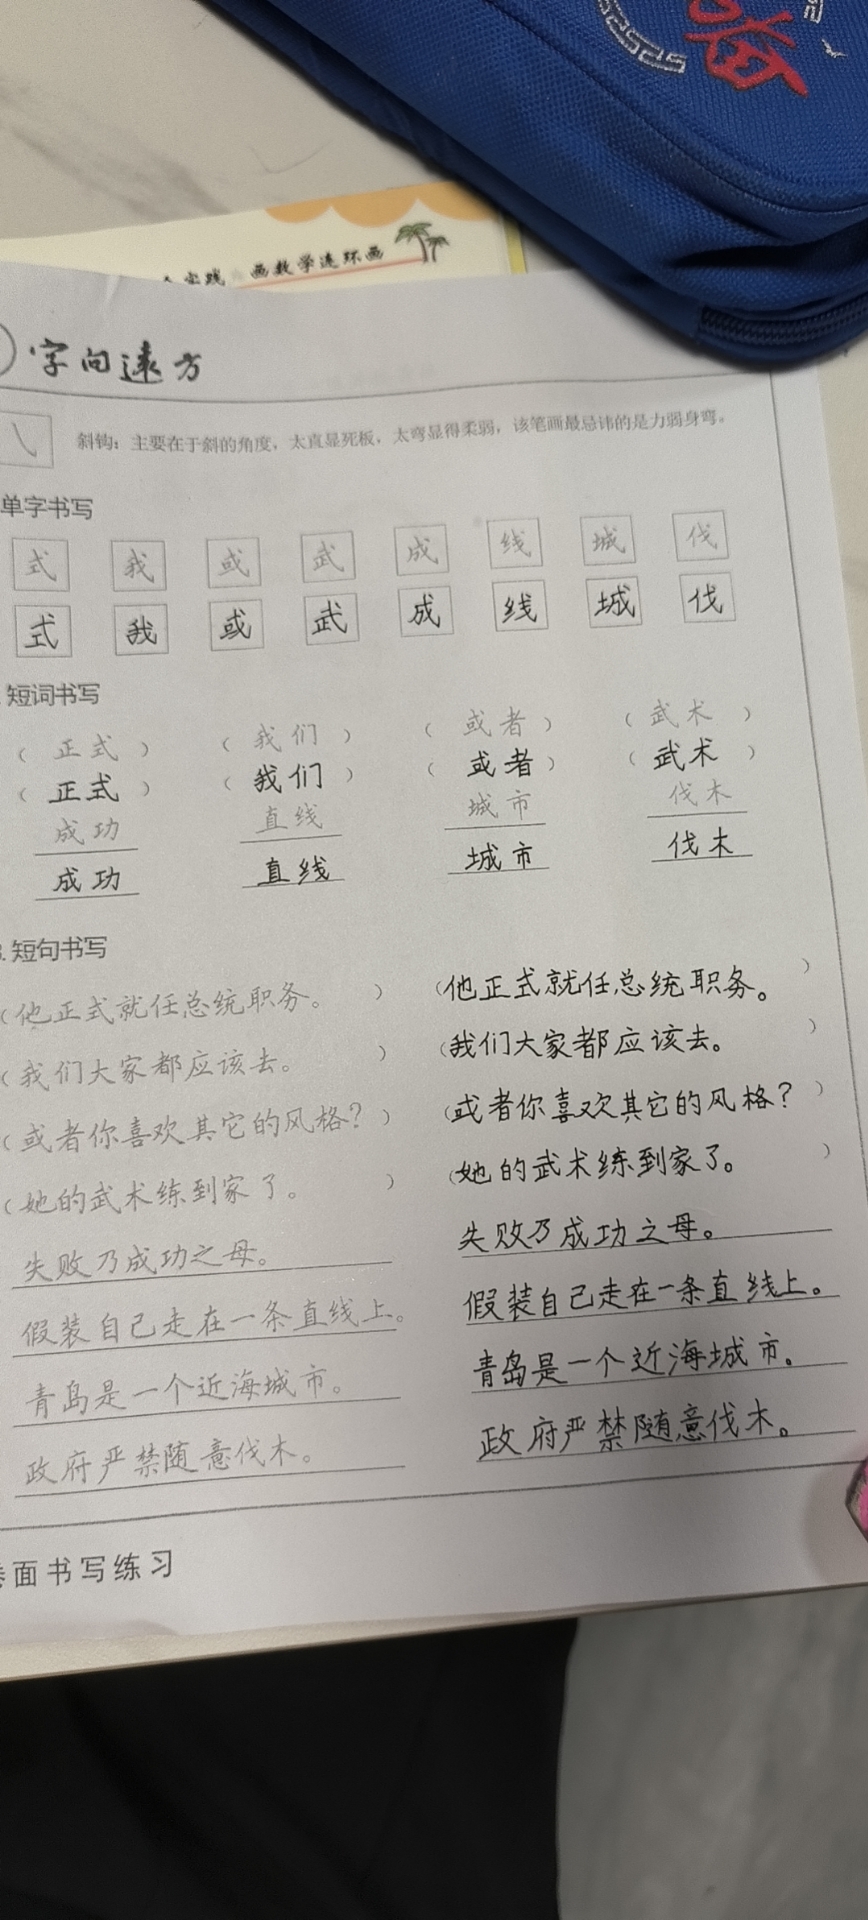 实践 画数学连环画
字向远方
斜钩：主要在于斜的角度，太直显死板，太弯显得柔弱，该笔画最忌讳的是力弱身弯。
单字书写
式 我 或 武 成 线 城 伐
式 我 或 武 成 线 城 伐
短词书写
（正式） （我们） （或者） （武术）
（正式） （我们） （或者） （武术）
成功 直线 城市 伐木
成功 直线 城市 伐木
3.短句书写
（他正式就任总统职务。） （他正式就任总统职务。）
（我们大家都应该去。） （我们大家都应该去。）
（或者你喜欢其它的风格？） （或者你喜欢其它的风格？）
（她的武术练到家了。） （她的武术练到家了。）
失败乃成功之母。 失败乃成功之母。
假装自己走在一条直线上。 假装自己走在一条直线上。
青岛是一个近海城市。 青岛是一个近海城市。
政府严禁随意伐木。 政府严禁随意伐木。
卷面书写练习